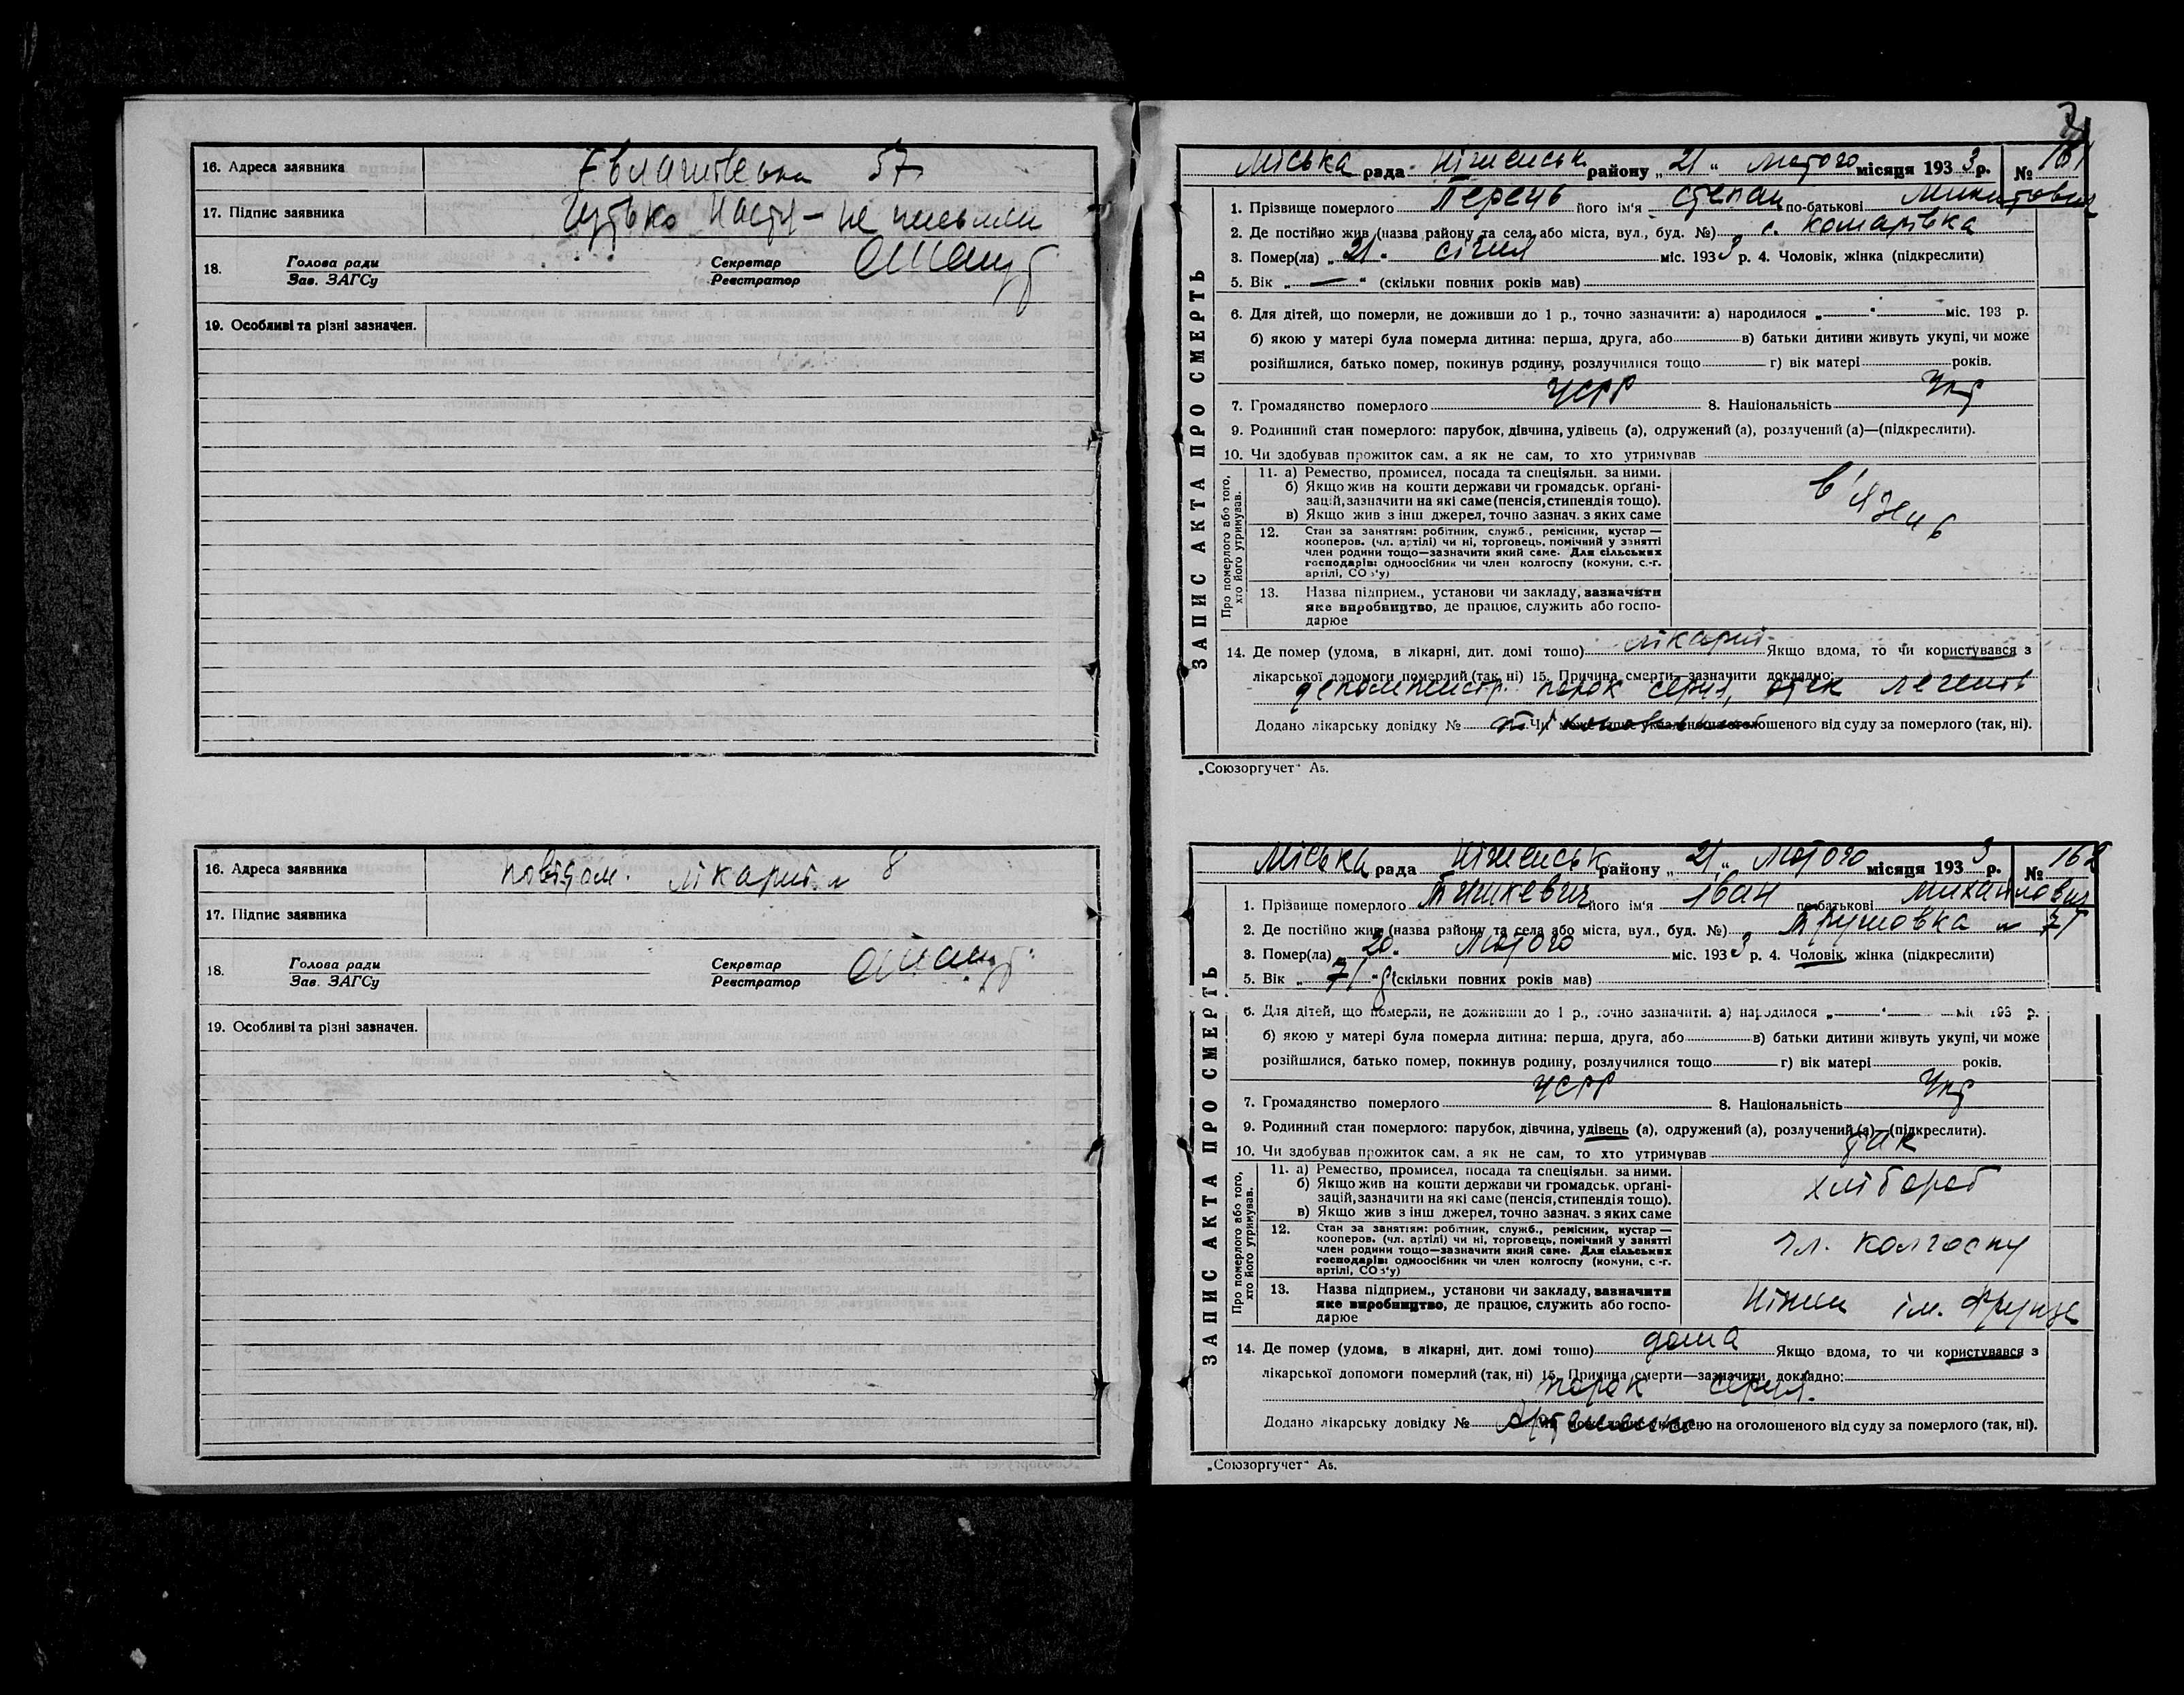 16. Адреса заявника 57
17. Підпис заявника Настя — не письмен
18. Голова ради Секретар
Зав. ЗАГСу Реєстратор
19. Особливі та різні зазначен.
16. Адреса заявника повідом. лікарні № 8
17. Підпис заявника
18. Голова ради Секретар
Зав. ЗАГСу Реєстратор
19. Особливі та різні зазначен.
3
Міська рада Ніженськ району „21“ лютого місяця 1933 р. № 161
ЗАПИС АКТА ПРО СМЕРТЬ
1. Прізвище померлого Перець його ім'я Степан по-батькові Микитович
2. Де постійно жив (назва району та села або міста, вул., буд. №) с. Комарівка
3. Помер(ла) „21“ січня міс. 1933 р. 4. Чоловік, жінка (підкреслити)
5. Вік „—“ (скільки повних років мав)
6. Для дітей, що померли, не доживши до 1 р., точно зазначити: а) народилося „ “ міс. 193 р.
б) якою у матері була померла дитина: перша, друга, або в) батьки дитини живуть укупі, чи може
розійшлися, батько помер, покинув родину, розлучилися тощо г) вік матері років.
7. Громадянство померлого УСРР 8. Національність Укр
9. Родинний стан померлого: парубок, дівчина, удівець (а), одружений (а), розлучений (а)—(підкреслити).
10. Чи здобував прожиток сам, а як не сам, то хто утримував
Про померлого або того, хто його утримував.
11. а) Ремество, промисел, посада та спеціяльн. за ними.
б) Якщо жив на кошти держави чи громадськ. організацій, зазначити на які саме (пенсія, стипендія тощо).
в) Якщо жив з інш джерел, точно зазнач. з яких саме
в'язень
12. Стан за занятям: робітник, служб., ремісник, кустар —
кооперов. (чл. артілі) чи ні, торговець, помічний у занятті
член родини тощо—зазначити який саме. Для сільських
господарів: одноосібник чи член колгоспу (комуни, с.-г.
артілі, СОЗ'у)
13. Назва підприєм., установи чи закладу, зазначити
яке виробництво, де працює, служить або господарює
14. Де помер (удома, в лікарні, дит. домі тощо) лікарні Якщо вдома, то чи користувався з
лікарської допомоги померлий (так, ні) 15. Причина смерти—зазначити докладно:
порок серця, отек легенів
Додано лікарську довідку № Чи може запис укладено на оголошеного від суду за померлого (так, ні).
„Союзоргучет“ А5.
Міська рада Ніженськ району „21“ лютого місяця 1933 р. № 162
ЗАПИС АКТА ПРО СМЕРТЬ
1. Прізвище померлого Тишкевич його ім'я Іван по-батькові Михайлович
2. Де постійно жив (назва району та села або міста, вул., буд. №) № 71
3. Помер(ла) „20“ лютого міс. 1933 р. 4. Чоловік, жінка (підкреслити)
5. Вік „71“ р (скільки повних років мав)
6. Для дітей, що померли, не доживши до 1 р., точно зазначити: а) народилося „ “ міс. 193 р.
б) якою у матері була померла дитина: перша, друга, або в) батьки дитини живуть укупі, чи може
розійшлися, батько помер, покинув родину, розлучилися тощо г) вік матері років.
7. Громадянство померлого УСРР 8. Національність Укр
9. Родинний стан померлого: парубок, дівчина, удівець (а), одружений (а), розлучений (а)—(підкреслити).
10. Чи здобував прожиток сам, а як не сам, то хто утримував так
Про померлого або того, хто його утримував.
11. а) Ремество, промисел, посада та спеціяльн. за ними.
б) Якщо жив на кошти держави чи громадськ. організацій, зазначити на які саме (пенсія, стипендія тощо).
в) Якщо жив з інш джерел, точно зазнач. з яких саме
хлібороб
12. Стан за занятям: робітник, служб., ремісник, кустар —
кооперов. (чл. артілі) чи ні, торговець, помічний у занятті
член родини тощо—зазначити який саме. Для сільських
господарів: одноосібник чи член колгоспу (комуни, с.-г.
артілі, СОЗ'у)
чл. колгоспу
13. Назва підприєм., установи чи закладу, зазначити
яке виробництво, де працює, служить або господарює
Ніжин ім. Фрунзе
14. Де помер (удома, в лікарні, дит. домі тощо) дома Якщо вдома, то чи користувався з
лікарської допомоги померлий (так, ні) 15. Причина смерти—зазначити докладно:
порок серця.
Додано лікарську довідку № Чи може запис укладено на оголошеного від суду за померлого (так, ні).
„Союзоргучет“ А5.